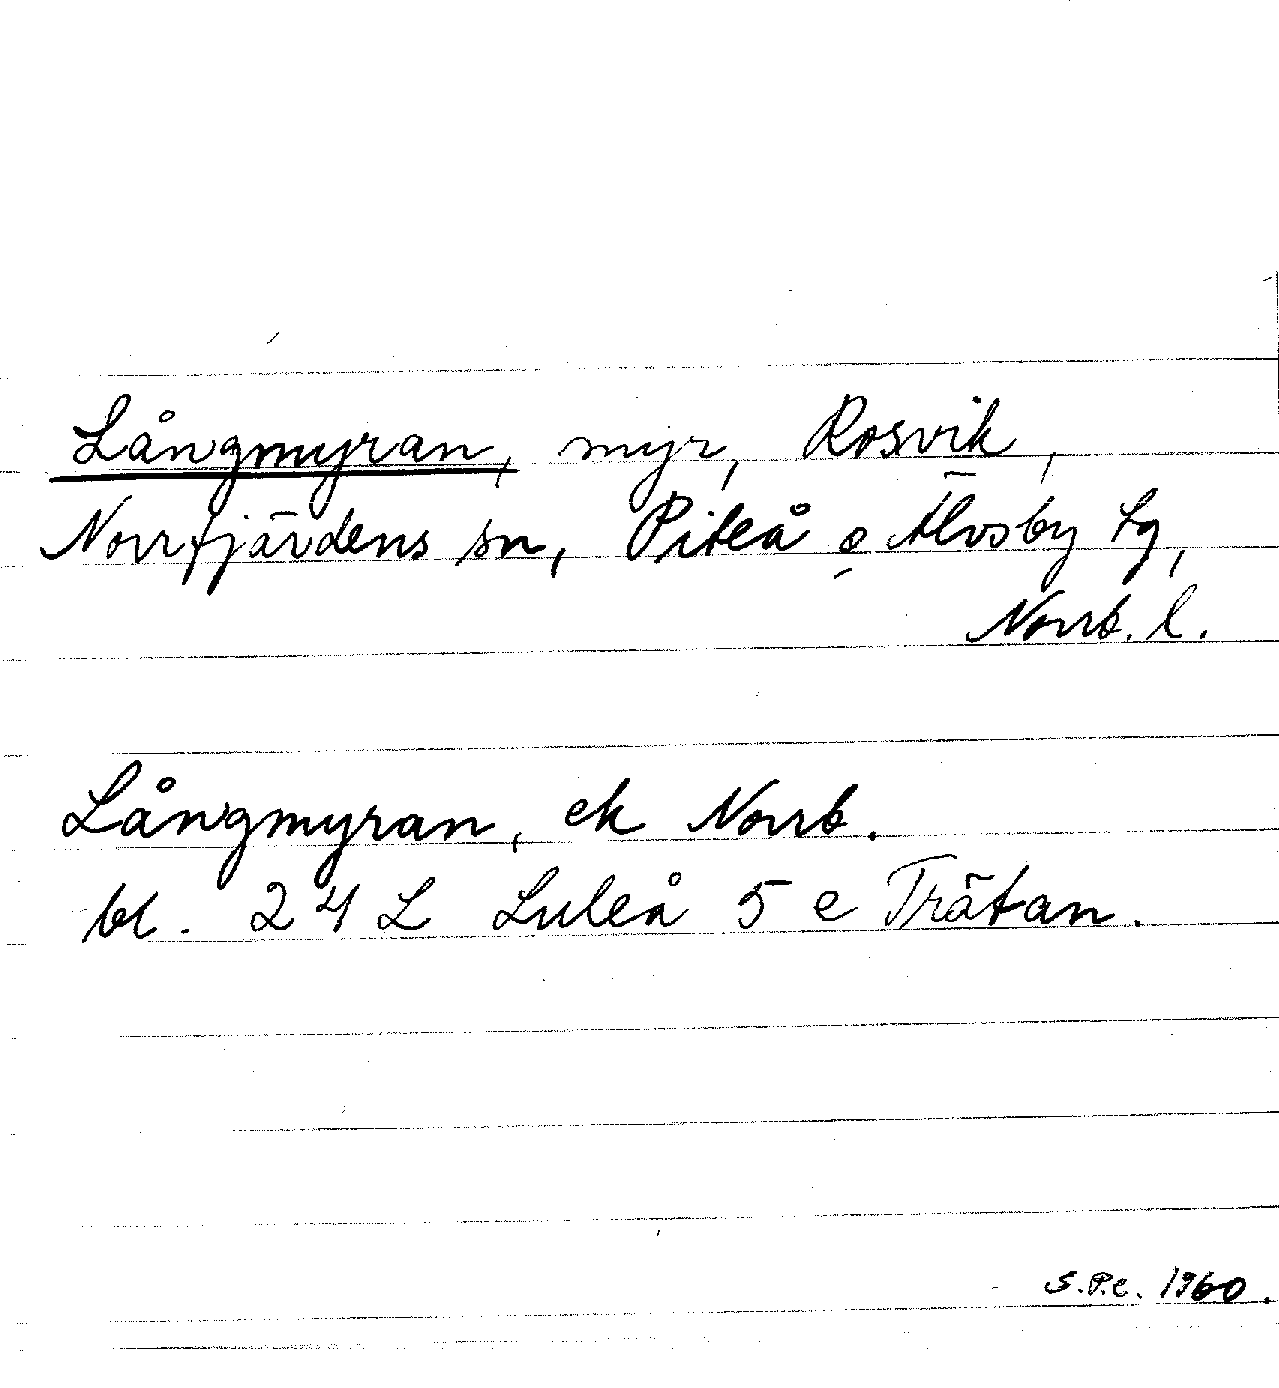 Långmyran, myr, Rosvik,
Norrfjärdens sn, Piteå o Älvsby tg,
Norrb. l.
Långmyran, ek Norrb.
bl. 24 L Luleå 5 e Trätan.
S.P.e. 1960.